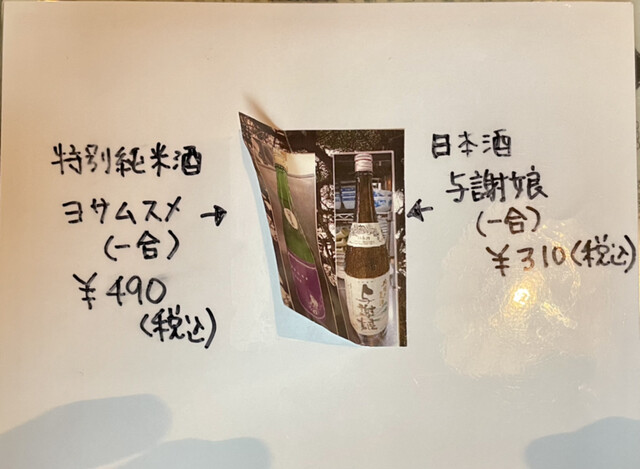 特別純米酒
ヨサムスメ →
(一合)
¥490
(税込)
日本酒
与謝娘
←
(一合)
¥310(税込)
与謝娘